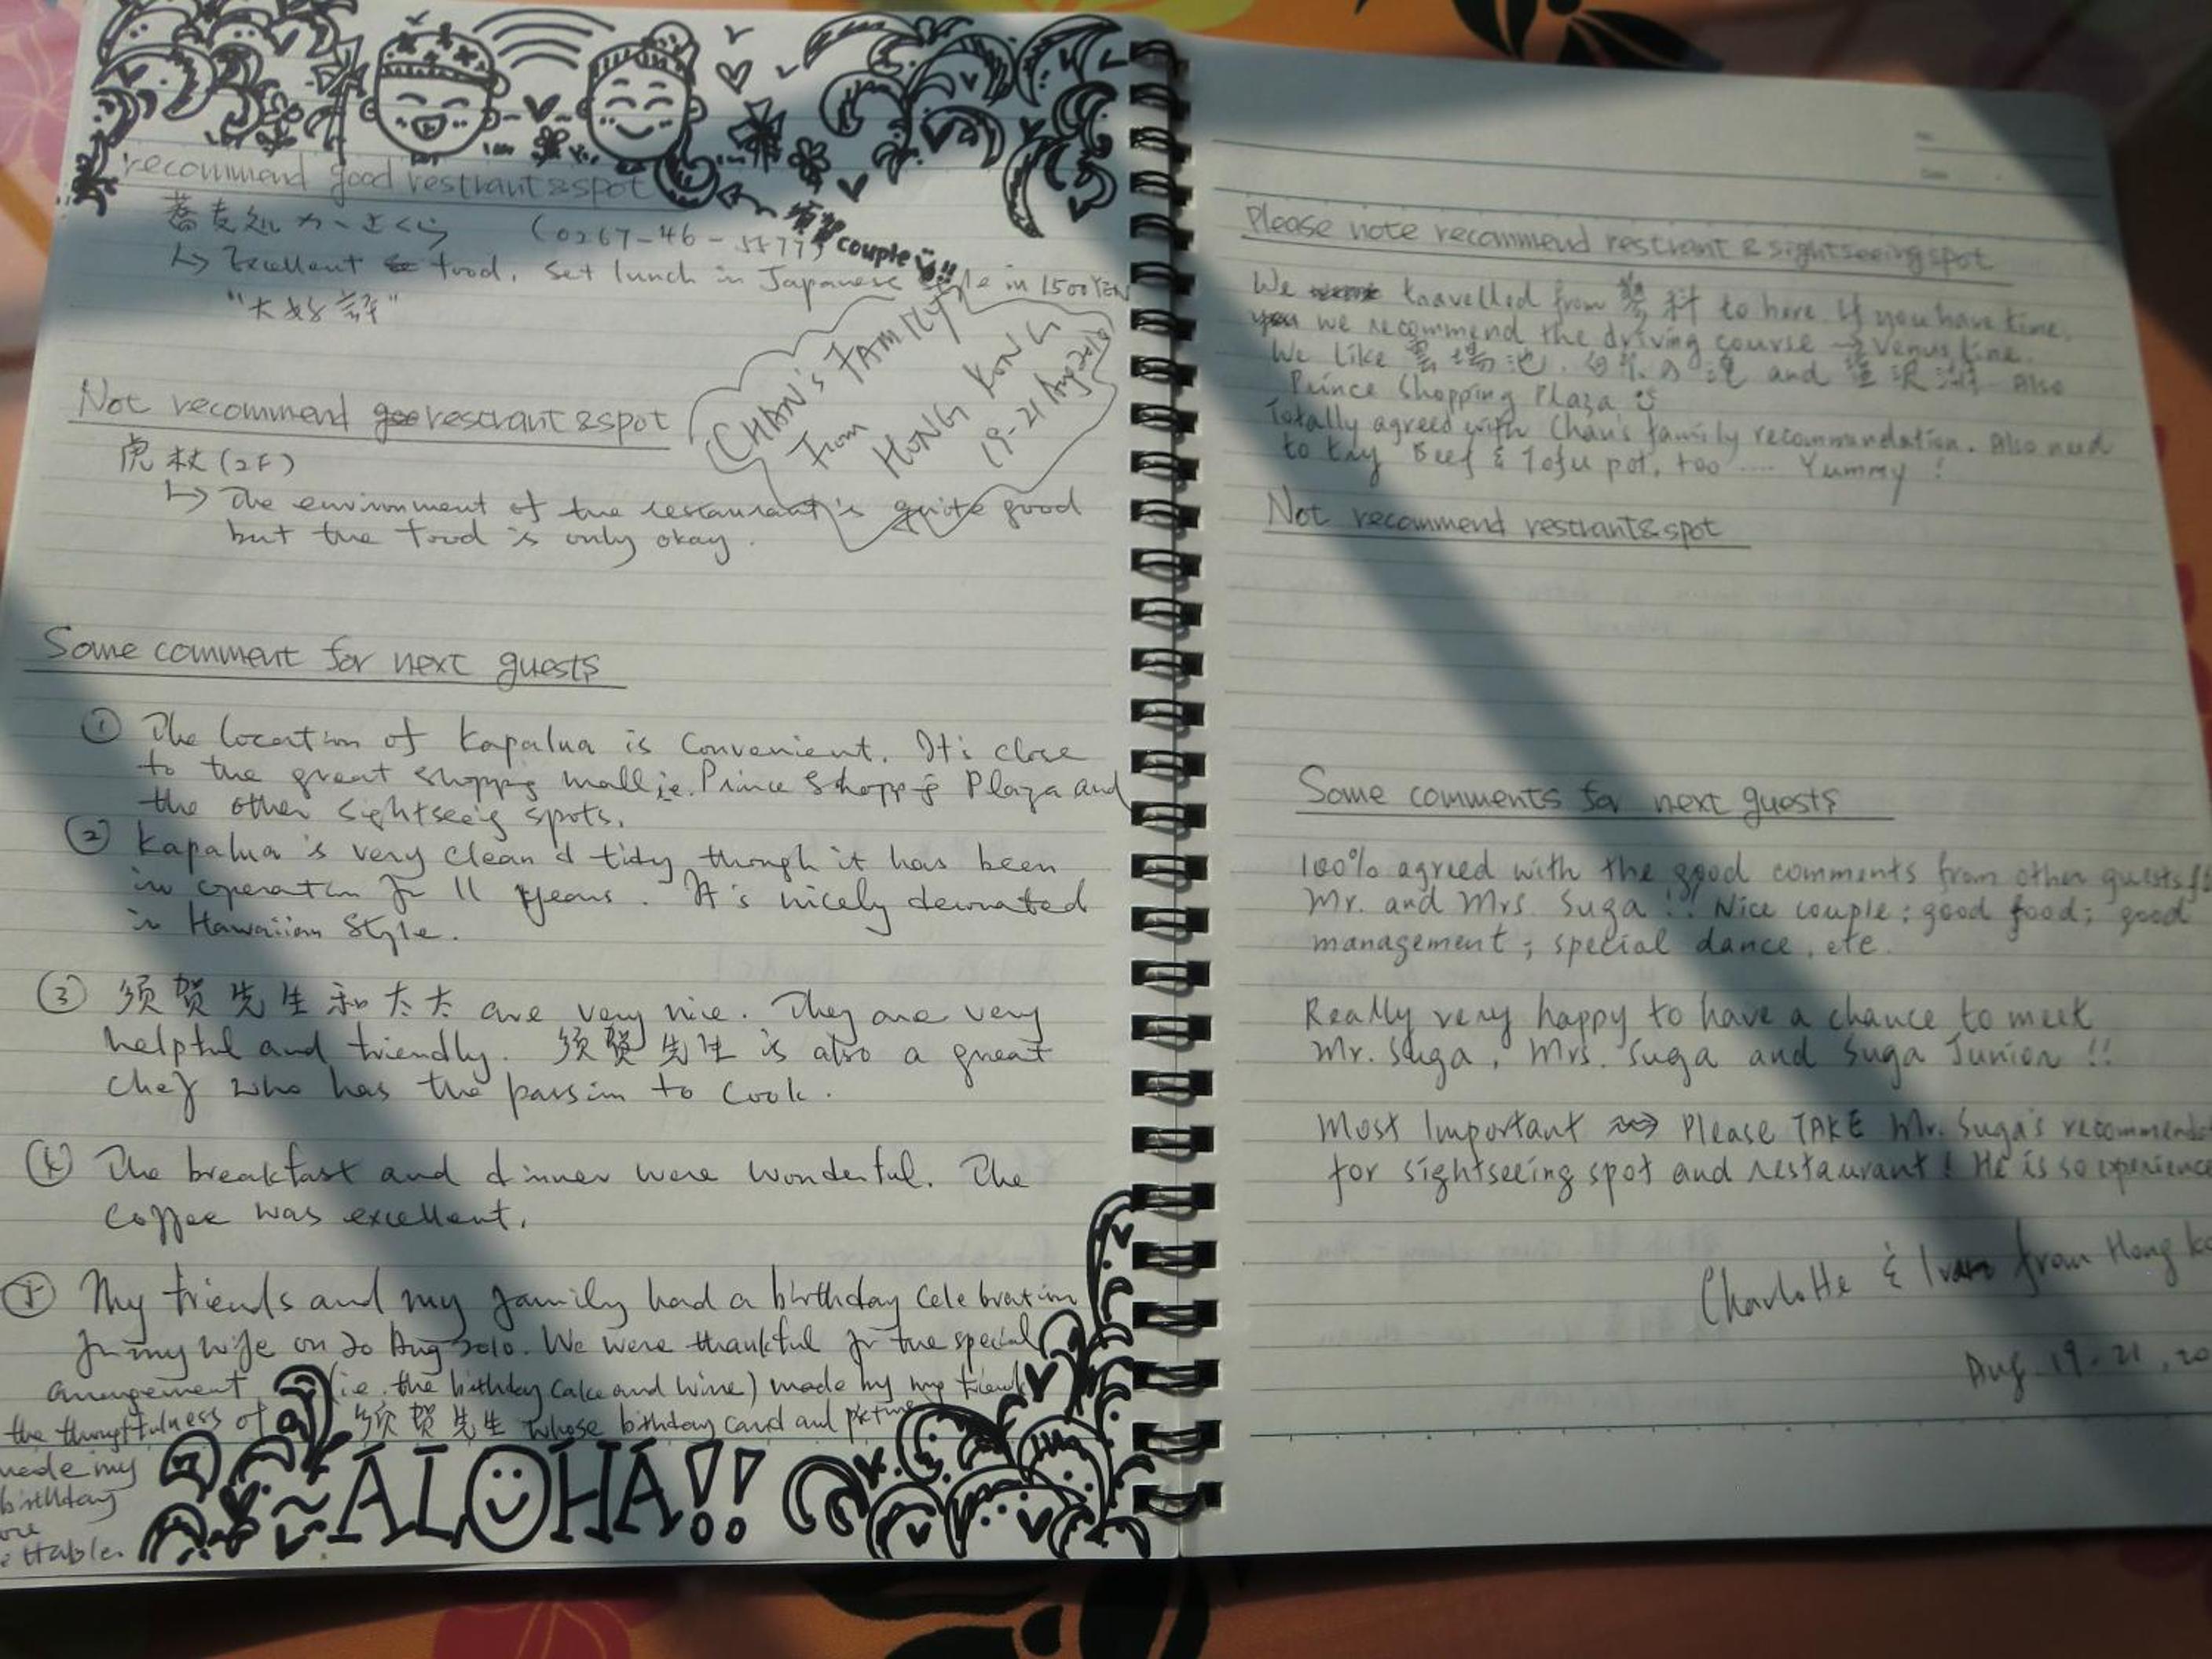 recommend good restrant & spot
蕎麦処 かぎさくら (0267-46-5577)
須賀 couple !!
↳ Excellent food. Set lunch in Japanese style in 1500 YEN
"大好評"
CHAN's FAMILY
From
HONG KONG
19-21 Aug 2010
Not recommend restrant & spot
虎杖 (2F)
↳ The environment of the restaurant is quite good
but the food is only okay.
Some comment for next guests
① The location of Kapalua is convenient. It's close
to the great shopping mall ie. Prince Shopping Plaza and
the other sightseeing spots.
② Kapalua is very clean & tidy though it has been
in operation for 11 years. It's nicely decorated
in Hawaiian Style.
③ 须贺先生和太太 are very nice. They are very
helpful and friendly. 须贺先生 is also a great
chef who has the passion to cook.
④ The breakfast and dinner were wonderful. The
coffee was excellent.
⑤ My friends and my family had a birthday celebration
for my wife on 20 Aug 2010. We were thankful for the special
arrangement (i.e. the birthday cake and wine) made by my friends
the thoughtfulness of 须贺先生 whose birthday card and picture
made my
birthday
~ALOHA!!
Please note recommend restrant & sightseeing spot
We travelled from 蓼科 to here. If you have time,
we recommend the driving course → Venus line.
We like 雲場池, 白糸の滝 and 軽井沢 Also
Prince Shopping Plaza
Totally agreed with Chan's family recommendation. Also need
to try Beef & Tofu pot, too .... Yummy !
Not recommend restrant & spot
Some comments for next guests
100% agreed with the good comments from other guests
Mr. and Mrs. Suga !! Nice couple ; good food ; good
management ; special dance, etc.
Really very happy to have a chance to meet
Mr. Suga, Mrs. Suga and Suga Junior !!
Most Important ⇝ Please TAKE Mr. Suga's
for sightseeing spot and restaurant ! He is so
Charlotte & Ivan from Hong
Aug. 19-21, 20